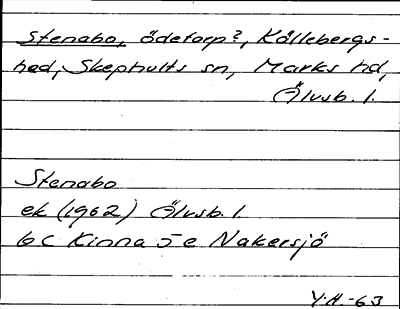 Stenabo, ödetorp?, Källebergs-
hed, Skephults sn, Marks hd,
Älvsb. l.
Stenabo
ek (1962) Älvsb. l.
6C Kinna 5e Nakersjö
Y.H.-63